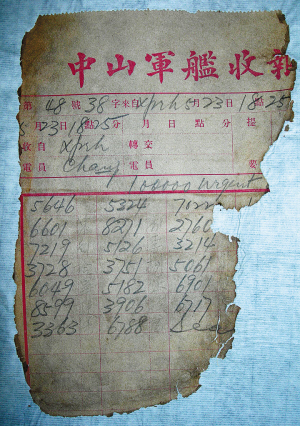 中山軍艦收報
第 48 號 38 字來自 xprh 5 月 23 日 18 點 25
5 月 23 日 18 點 25 分 月 日 點 分 援
收自 xprh 轉交
電員 Chang 電員 要
urgent
5646 5324
6601 8271 2760
7219 5126 3214
3728 3751 5061
6049 5182 6901
8599 3906 6717
3363 6788